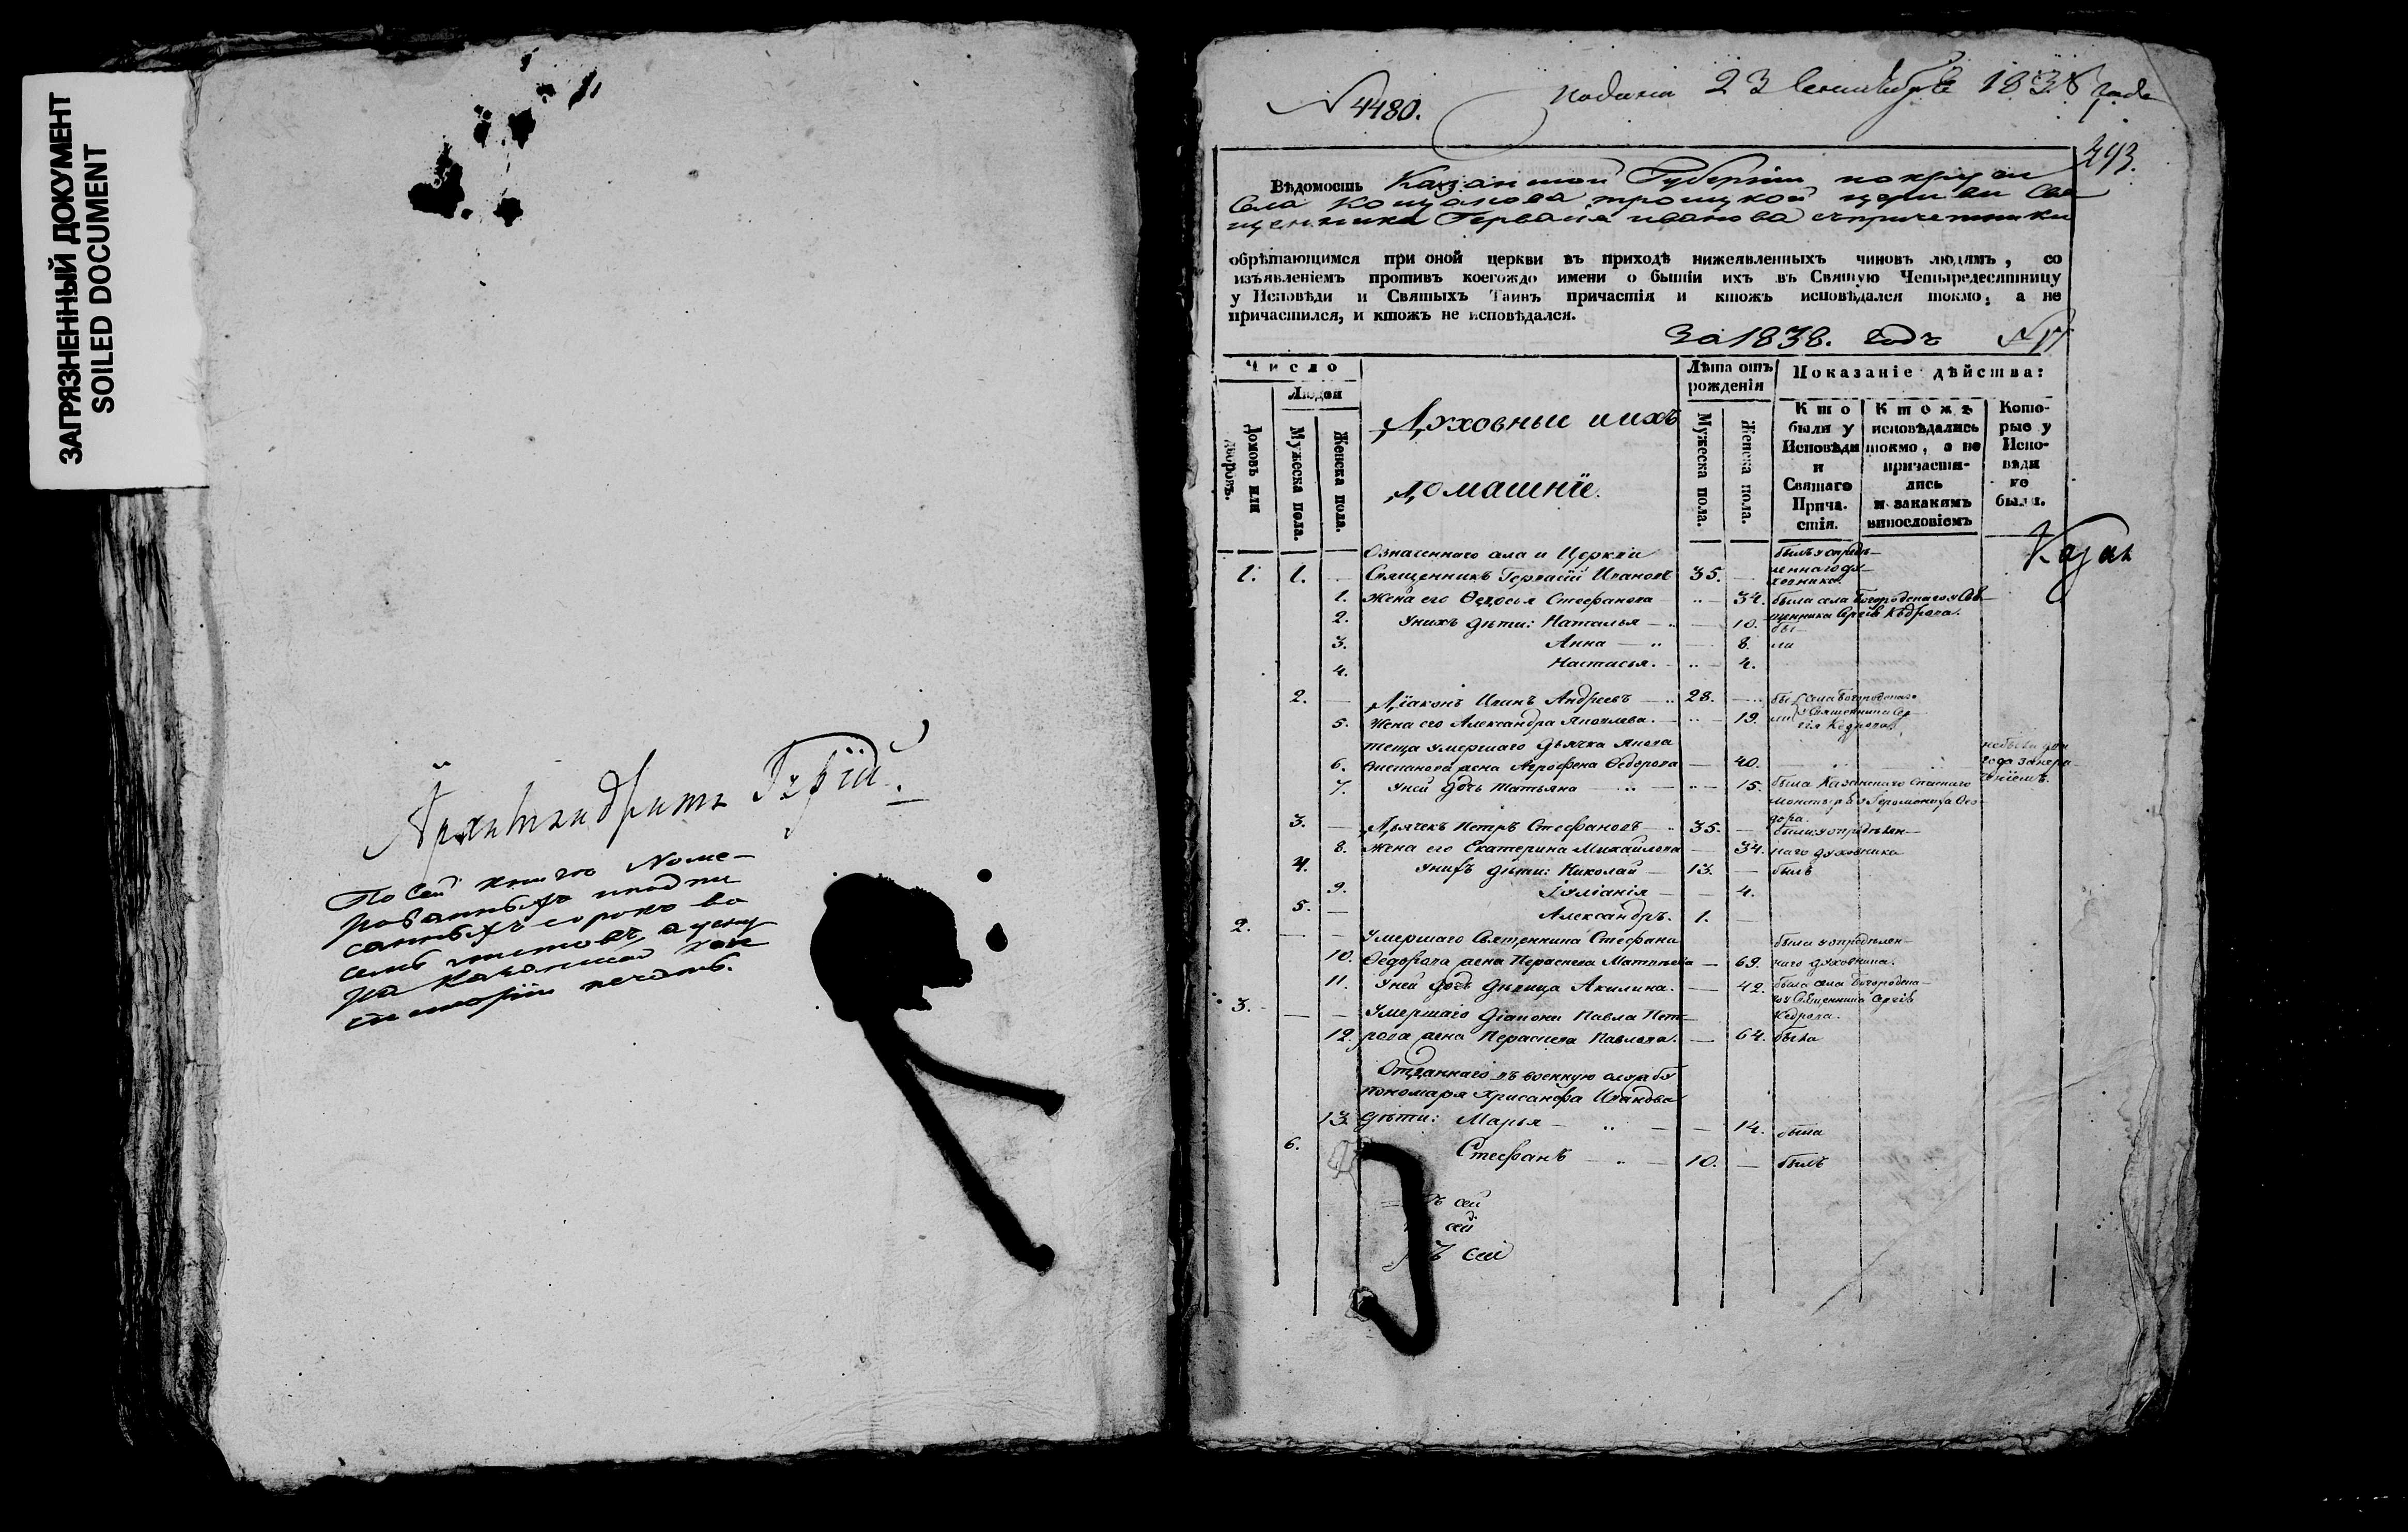 ЗАГРЯЗНЕННЫЙ ДОКУМЕНТ
SOILED DOCUMENT
Архимандритъ Гурій.
По сей книгѣ Номе-
рованныхъ
санныхъ сорокъ во
семь листовъ
Казанской Кон
систоріи печать.
N 4480.
23 Сентября 1838 года
493.
Вѣдомость Казанской Губерніи
Села Кощакова троицкой церкви Свя
щенника Гервасія иванова спричетники
обрѣтающимся при оной церкви въ приходѣ нижеявленныхъ чиновъ людямъ, со
изъявленіемъ противъ коегождо имени о бытіи ихъ въ Святую Четыредесятницу
у Исповѣди и Святыхъ Таинъ причастія и ктожъ исповѣдался токмо, а не
причастился, и ктожъ не исповѣдался.
За 1838. годъ
Число
Людей
Домовъ или дворовъ.
Мужеска пола.
Женска пола.
Духовныи иихъ
домашніе.
Лѣта отъ рожденія
Мужеска пола.
Женска пола.
Показаніе дѣйства:
Кто были у Исповѣди и Святаго Прича- стія.
Ктожъ исповѣдались токмо, а не причасти- лись и закакимъ винословіемъ
Кото- рые у Испо- вѣди не были.
Казан
Означеннаго села и Церкви
1. 1. — Священникъ Гервасій Ивановъ 35. — былъ у опредѣ- леннаго ду- ховника.
1. Жена его Ѳедосья Стефанова 34. была села Богородскаго у Свя- щенника Сергія Кедрова.
2. Унихъ дѣти: Наталья 10. бы-
3. Анна 8. ли
4. Настасья. 4.
2. — Діаконъ Иванъ Андреевъ 28. бы села Богородскаго
5. Жена его Александра Яковлева. 19. ли у Священника Сер- гія Кедрова.
Теща умершаго дьячка Якова
6. Степанова жена Агрофена Ѳедорова — 40. небыла
7. Уней дочь Татьяна 15. была Казанскаго Спаскаго монастыря у Іеромонаха Ѳео- дора.
3. — Дьячекъ Петръ Стефановъ 35. — были у опредѣлен-
8. Жена его Екатерина Михайлова — 34. наго духовника
4. Унихъ дѣти: Николай 13. — былъ
9. Іуліанія — 4.
5. — Александръ. 1. —
2. — — Умершаго Священника Стефана была у опредѣлен-
10. Ѳедорова жена Параскева Матвѣева — 69. наго духовника.
11. Уней дочь дѣвица Акилина. — 42. была села Богородска-
3. — — Умершаго діакона Павла Пет- го у Священника Сергія Кедрова.
12. рова жена Параскева Павлова. — 64. была
Отданнаго въ военную службу
пономаря Хрисанфа Иванова
13. дѣти: Марья — — 14. была
6. Стефанъ 10. — былъ
сей
сей
сей